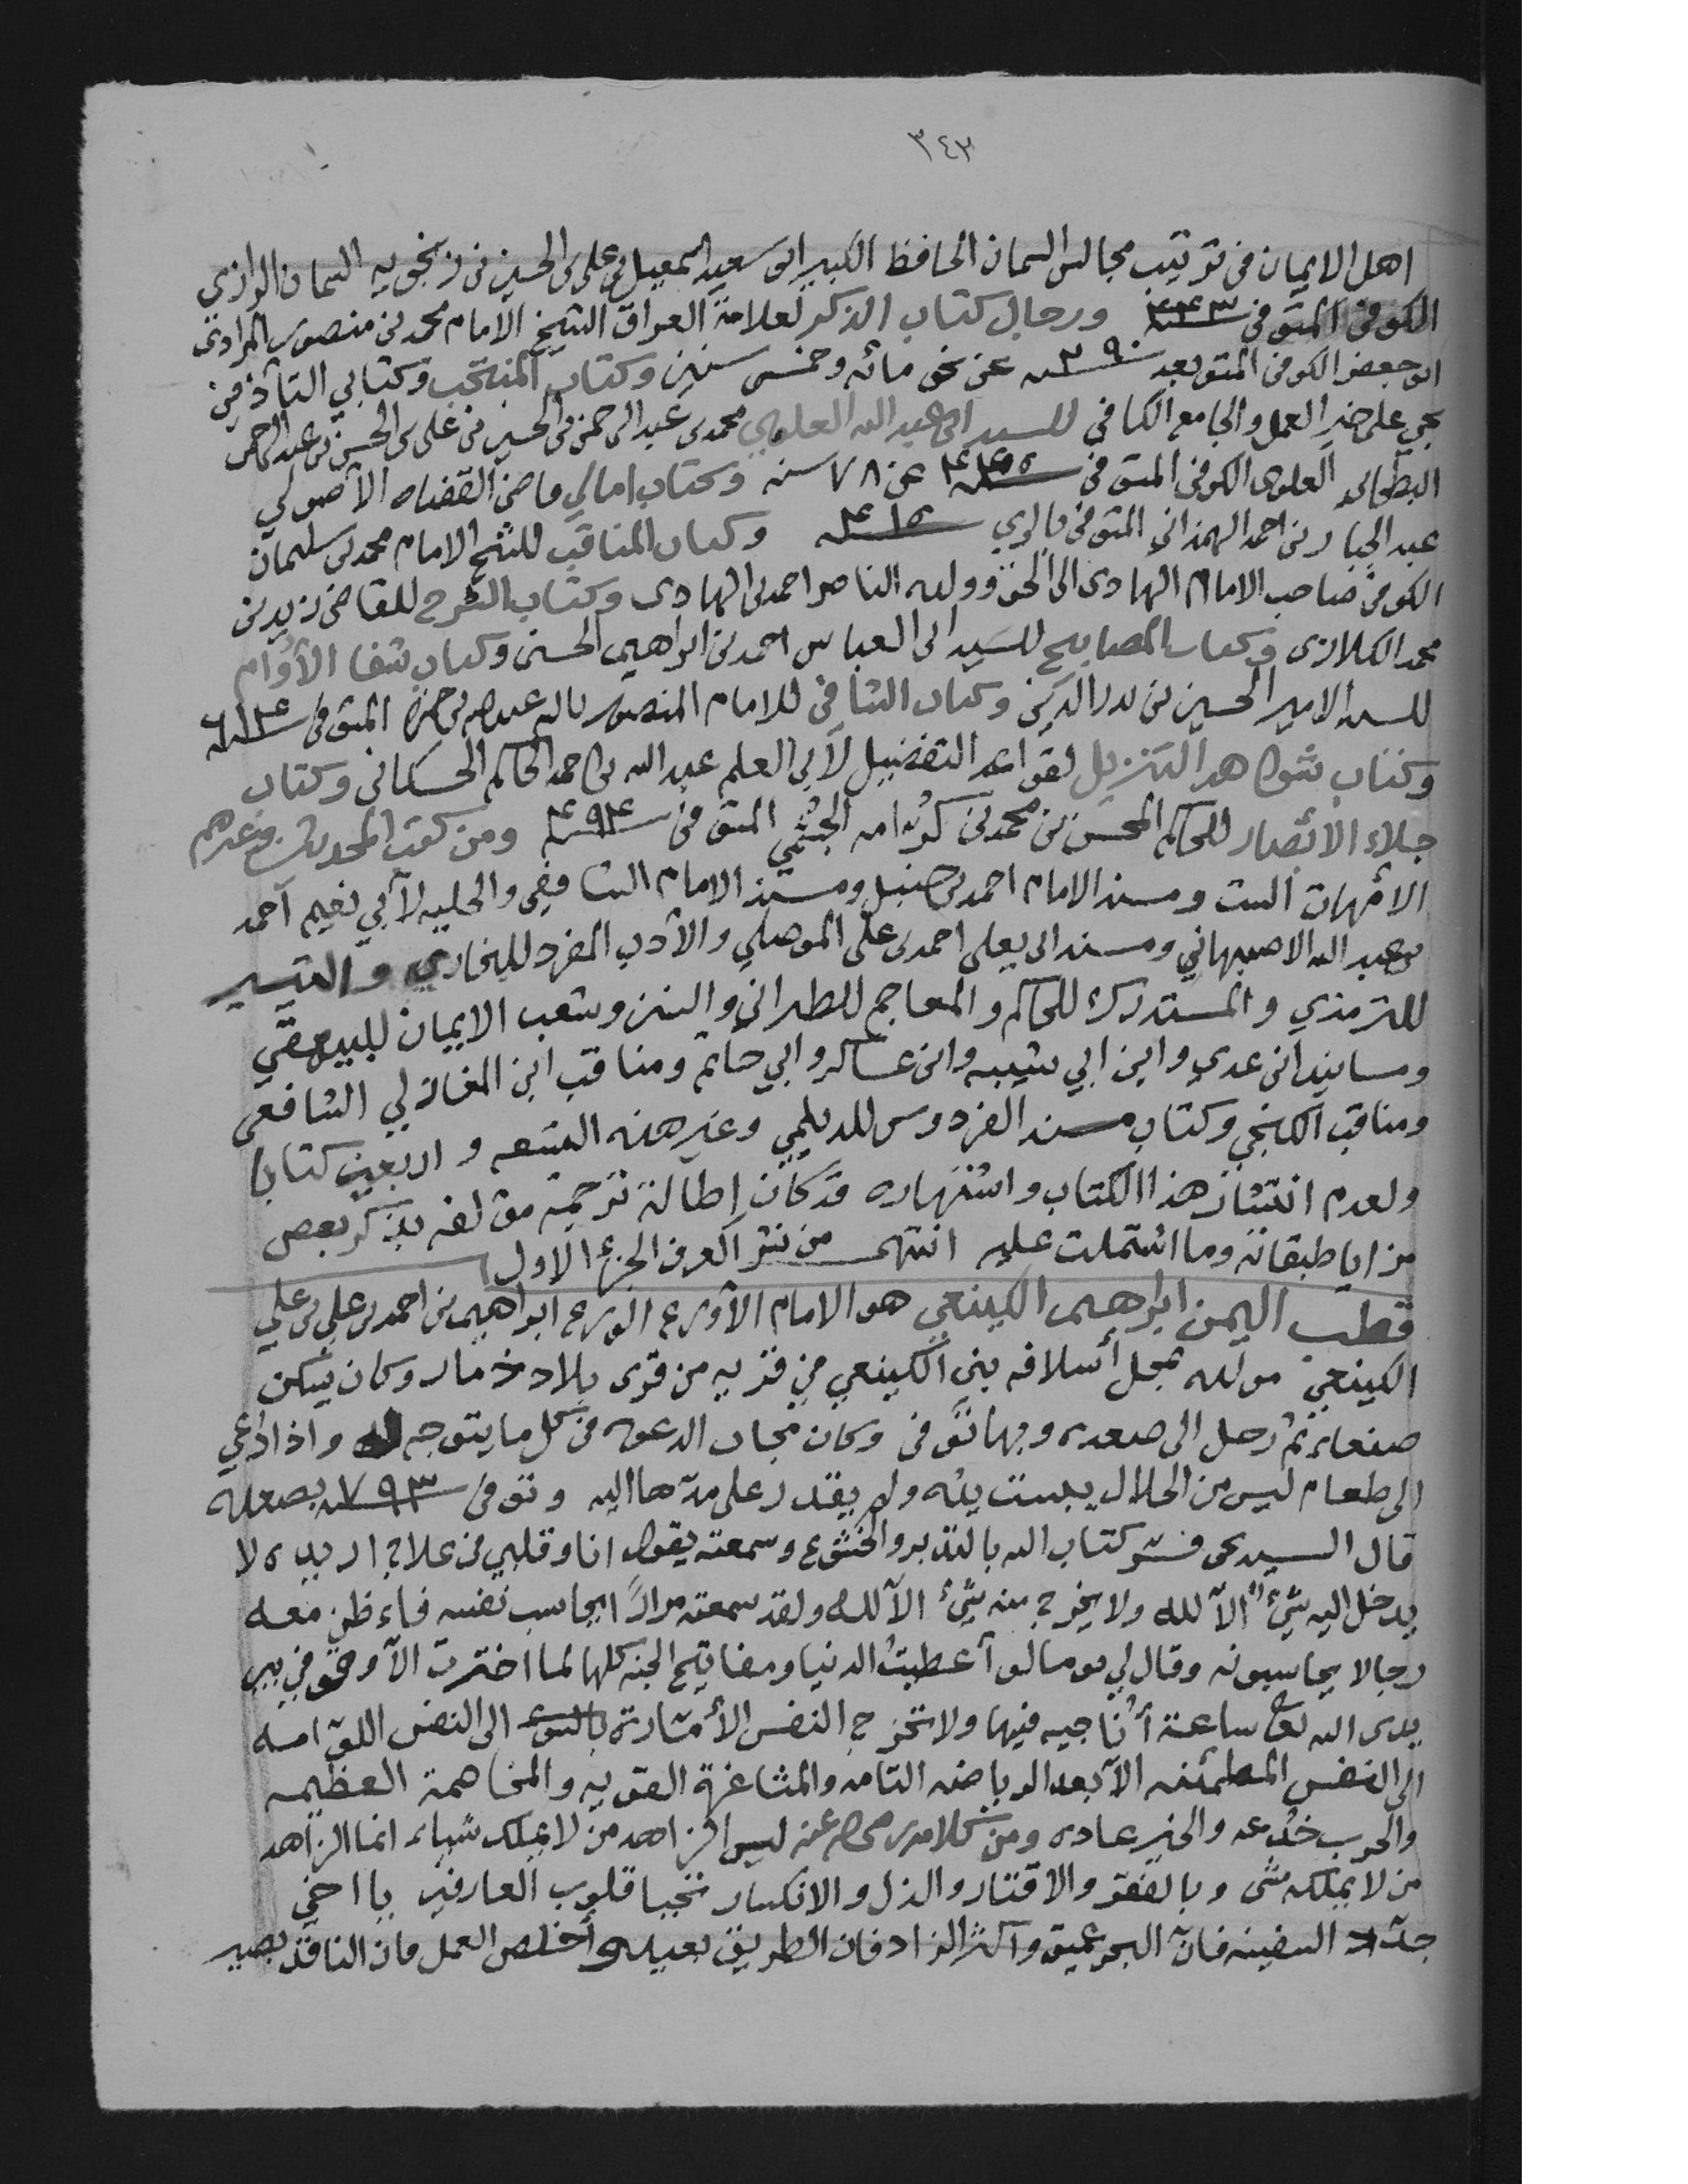 ٣٤٣
اهل الايمان في ترتيب مجالس السمان الحافظ الكبير ابي سعيد اسمعيل بن علي بن الحسين بن زنجويه السمان الرازي
الكوفي المتوفي سنة ٤٤٣ ورجال كتاب الذكر لعلامة العراق الشيخ الامام محمد بن منصور المرادي
ابو جعفر الكوفي المتوفي بعد سنة ٢٩٠ عن نحو مائه وخمس سنين وكتاب المنتخب وكتابي التأذين
بحي على خير العمل والجامع الكافي للسيد ابي عبد الله العلوي محمد بن عبد الرحمن بن الحسين بن علي بن الحسن بن عبد الرحمن
البطحاني العلوي الكوفي المتوفي سنة ٤٤٥ عن ٧٨ سنه وكتاب امالي قاضي القضاه الأصولي
عبد الجبار بن احمد الهمذاني المتوفي بالري سنة ٤١٥ وكتاب المناقب للشيخ الامام محمد بن سليمان
الكوفي صاحب الامام الهادي الى الحق وولده الناصر احمد بن الهادي وكتاب الشرح للقاضي زيد بن
محمد الكلاري وكتاب المصابيح للسيد ابي العباس احمد بن ابراهيم الحسني وكتاب شفا الأوام
للسيد الامير الحسين بن بدر الدين وكتاب الشافي للامام المنصور بالله عبد الله بن حمزه المتوفي سنة ٦١٤
وكتاب شواهد التنزيل لقواعد التفضيل لأبي العلم عبد الله بن احمد الحاكم الحسكاني وكتاب
جلاء الأبصار للحاكم المحسن بن محمد بن كرامه الجشمي المتوفي سنة ٤٩٤ ومن كتب المحدثين وغيرهم
الأمهات الست ومسند الامام احمد بن حنبل ومسند الامام الشافعي والحليه لأبي نعيم أحمد
بن عبد الله الاصبهاني ومسند ابي يعلى احمد بن علي الموصلي والأدب المفرد للبخاري والتيسير
للترمذي والمستدرك للحاكم والمعاجم للطبراني والسنن وشعب الايمان للبيهقي
ومسانيد ابن عدي وابن ابي شيبه وابن عساكر وابي حاتم ومناقب ابن المغازلي الشافعي
ومناقب الكنجي وكتاب مسند الفردوس للديلمي وغير هذه التسعه واربعين كتابا
ولعدم انتشار هذا الكتاب واشتهاره قد كان إطالة ترجمة مؤلفه بذكر بعض
مزايا طبقاته وما اشتملت عليه انتهى من نشر العرف الجزء الاول
قطب اليمن ابراهيم الكينعي هو الامام الأورع الورع ابراهيم بن احمد بن علي بن علي
الكينعي مولده بمحل أسلافه بني الكينعي من قريه من قرى بلاد ذمار وكان يسكن
صنعاء ثم رحل الى صعده وبها توفي وكان مجاب الدعوه في كل ما يتوجه له واذا دعي
الى طعام ليس من الحلال يبست يده ولم يقدر على مدها اليه وتوفي سنة ٧٩٣ بصعده
قال السيد يحي فسر كتاب الله بالتدبر والخشوع وسمعته يقول انا وقلبي في علاج اريده لا
يدخل اليه شيءٌ الآ لله ولا يخرج منه شيءٌ الآ لله ولقد سمعته مراراً يحاسب نفسه فاءظن معه
رجالا يحاسبونه وقال لي يوما لو آعطيت الدنيا ومفاتيح الجنه كلها لما اخترت الآ وقوفي بين
يدى الله تعالى ساعة أُناجيه فيها ولا تخرج النفس الأمّارة بالسوء الى النفس اللوّامه
الى النفس المطمئنه الآ بعد الرياضه التامه والمشاغرة القويه والمخاصمة العظيمه
والحرب خُدعه والخير عاده ومن كلامه رضي الله عنه ليس الزاهد من لا يملك شياء انما الزاهد
من لا يملكه شي وبالفقر والاقتار والذل والانكسار تحيا قلوب العارفين يا اخي
جدّد السفينه فانّ البحر عميق وآكثر الزاد فان الطريق بعيده وأخلص العمل فان الناقد بصير